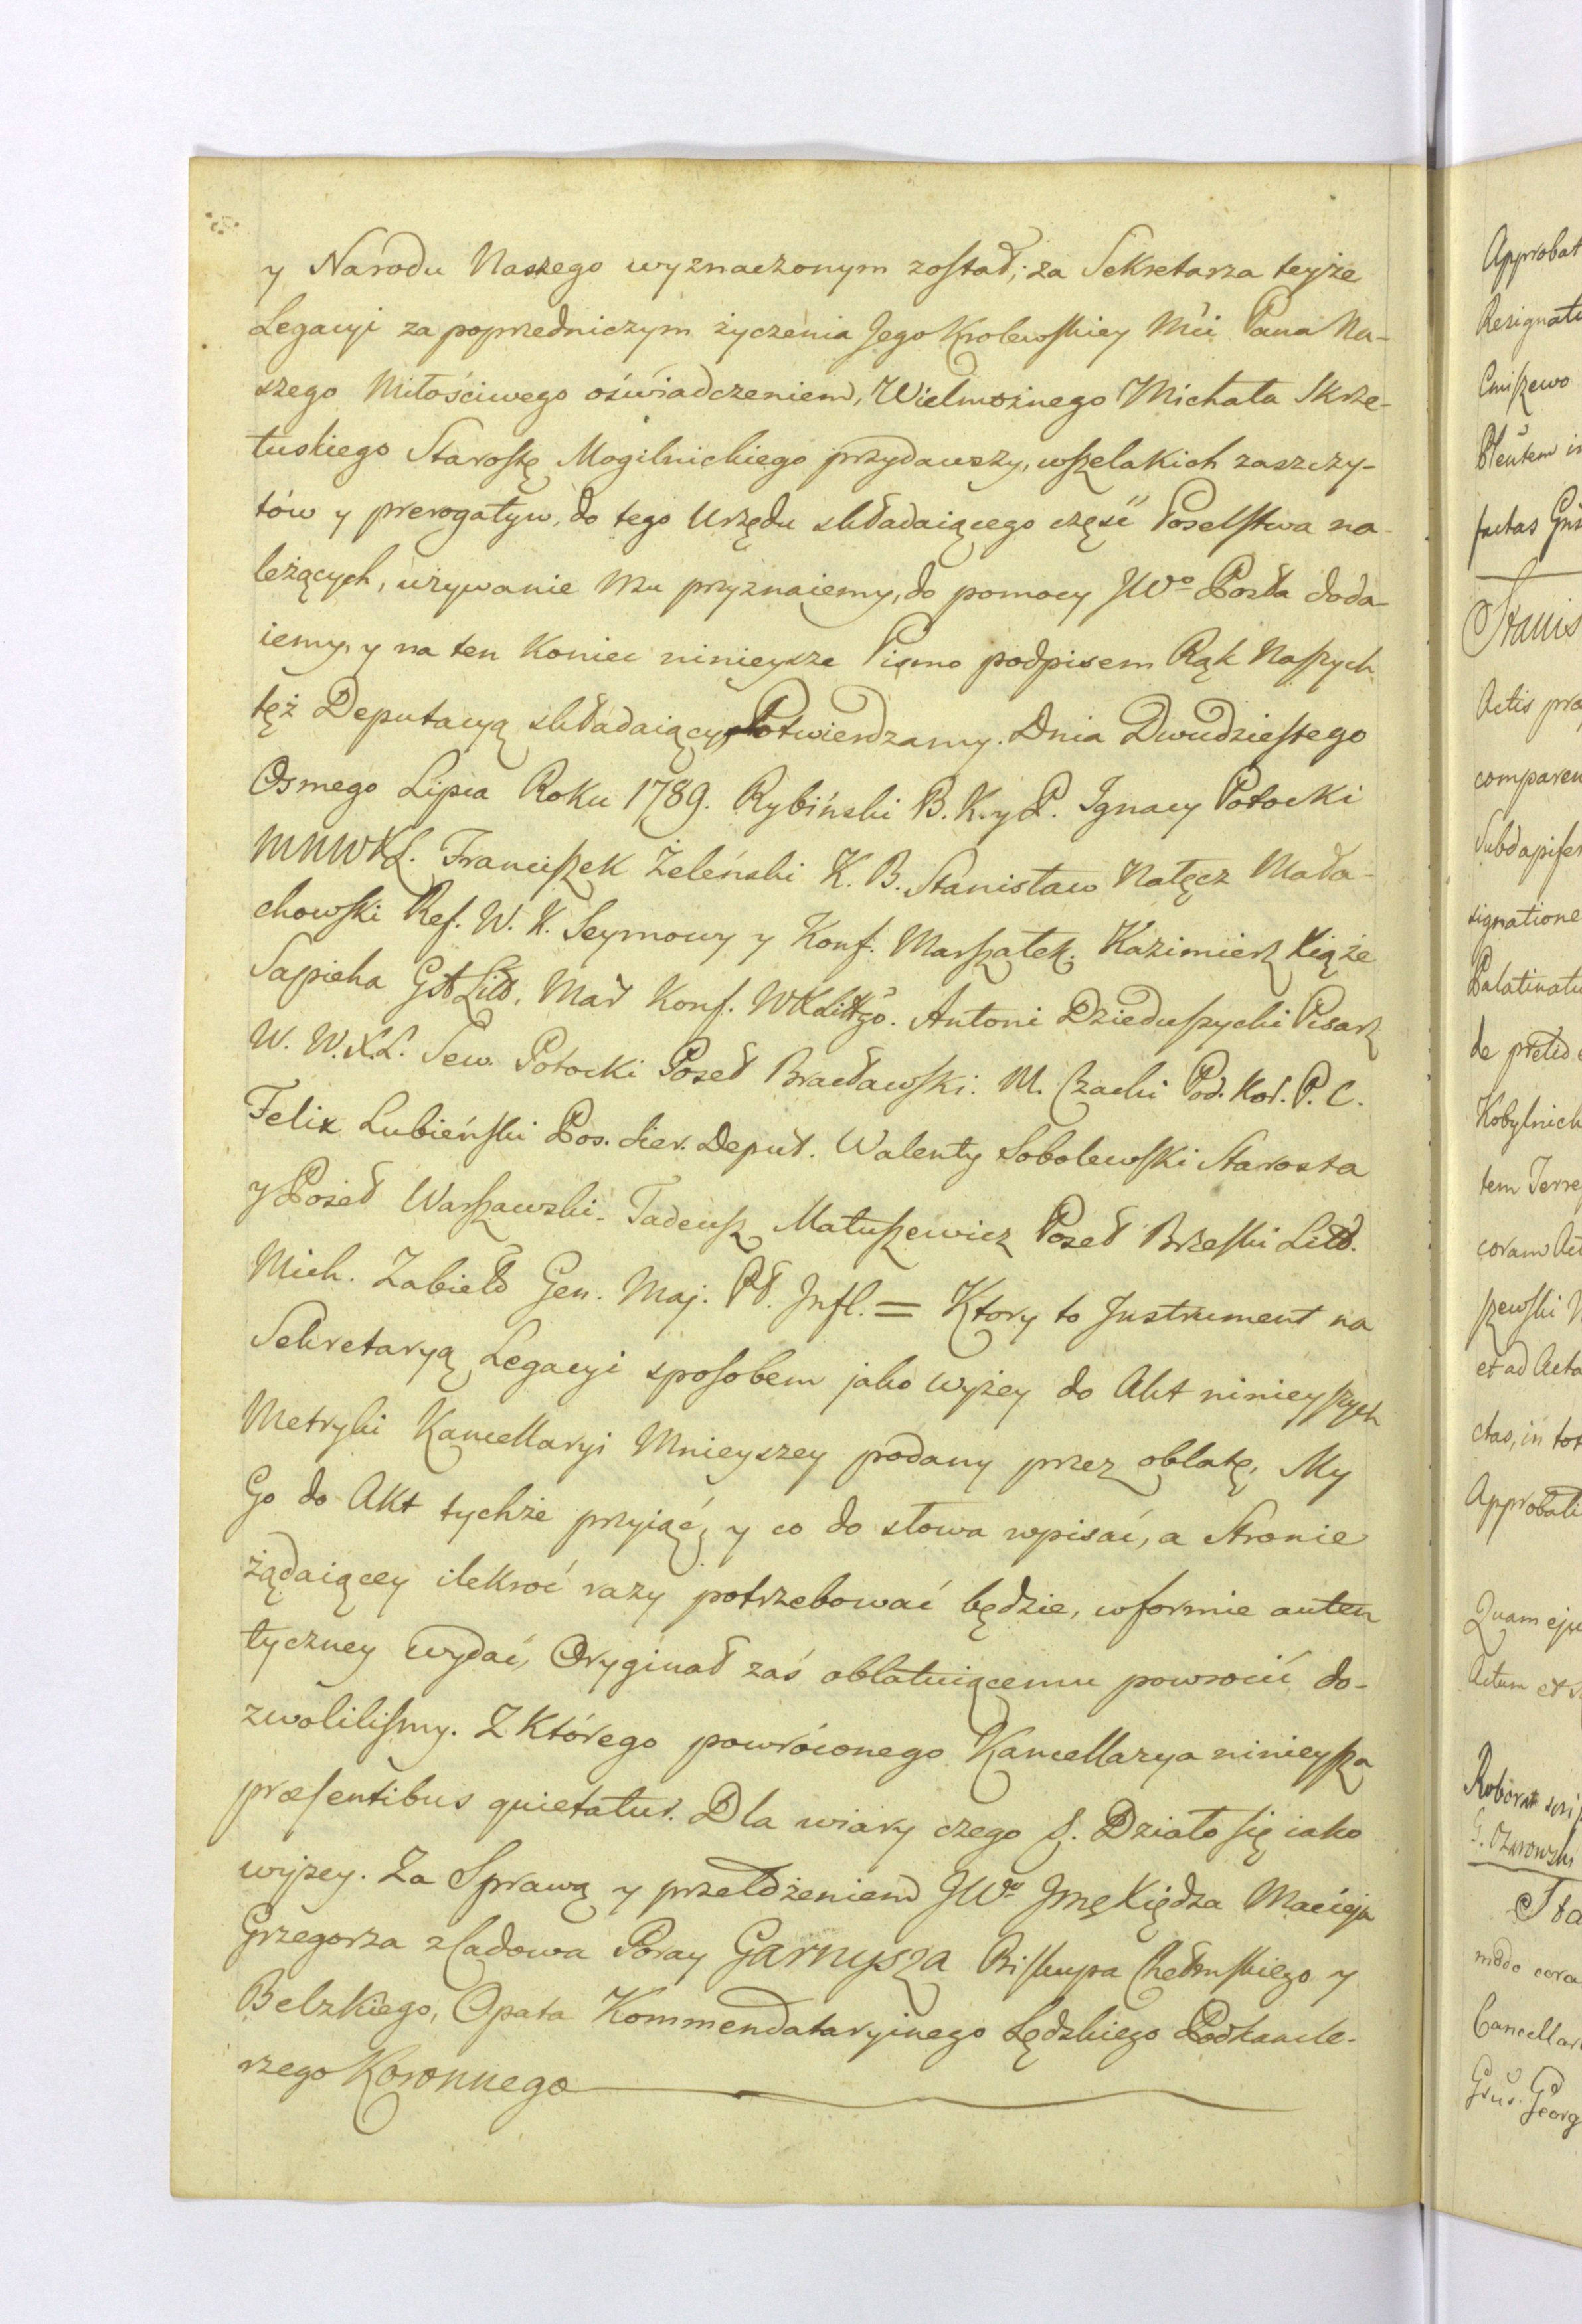 y Narodu Naszego wyznaczonym został; za Sekretarza teyże
Legacyi za poprzedniczym życzenia Jego Krolewskiey Mći Pana Na-
szego Miłościwego oświadczeniem, Wielmożnego Michała Skrze-
tuskiego Starostę Mogilnickiego przydawszy, wszelakich zaszczy-
tów y prerogatyw, do tego Urzędu składaiącego część Poselstwa na-
leżących, używanie Mu przyznaiemy, do pomocy JWo Posła doda-
iemy, y na ten koniec ninieysze Pismo podpisem Rąk Naszych
tęż Deputacyą składaiących Potwierdzamy. Dnia Dwudziestego
Osmego Lipca Roku 1789. Rybiński B. K. y P. Ignacy Potocki
MNWXL. Franciszek Żeleński K. B. Stanisław Nałęcz Mała-
chowski Ref. W. K. Seymowy y Konf. Marszałek. Kazimierz Xiąże
Sapieha GALitt. Mar Konf. WXLittgo. Antoni Dzieduszycki Pisarz
W. W.X.L. Sew. Potocki Poseł Bracławski. M. Czacki Pod. Kor. P. C.
Felix Lubieński Pos. Sier. Deput. Walenty Sobolewski Starosta
y Poseł Warszawski. Tadeusz Matuszewicz Poseł Brzeski Litt.
Mich. Zabiełło Gen. Maj. Pł. Infl. = Ktory to Instrument na
Sekretaryą Legacyi sposobem jako wyżey do Akt ninieyszych
Metryki Kancellaryi Mnieyszey podany przez oblatę, My
Go do Akt tychże przyiąć, y co do słowa wpisać, a Stronie
żądaiącey ilekroć razy potrzebować będzie, w formie auten
tyczney wydać, Oryginał zaś oblatuiącemu powrocić do-
zwolilismy. Z Którego powróconego Kancellarya ninieysza
præsentibus quietatur. Dla wiary czego &. Działo się iako
wyżey. Za Sprawą y przełożeniem JWo Jmę Xiędza Macieja
Grzegorza z Ładowa Poray Garnysza Biskupa Chełmskiego y
Belzkiego, Opata Kommendataryinego Lędzkiego Podkancle-
rzego Koronnego
Approbat
Resignat
Stanis
Actis
comparen
signatione
Palatinatu
Kobylnick
coram
et ad Acta
Approbati
Quam
Actum et
modo cora
Cancellar
Georg